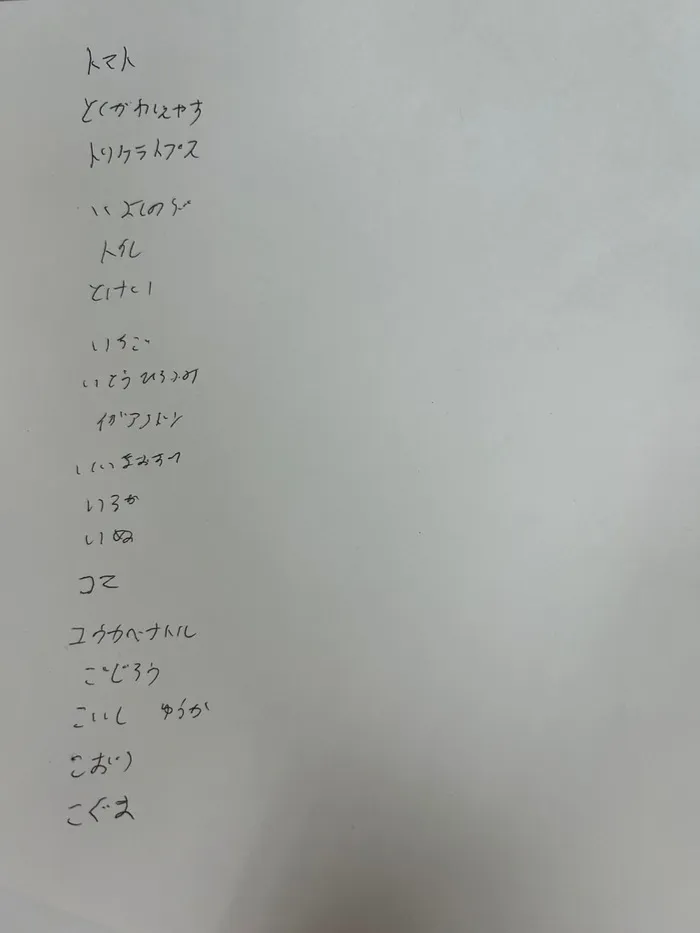 トマト
とくがわいえやす
トリケラトプス
トイレ
とけい
いちご
いとうひろふみ
イグアノドン
いいまみすつ
いるか
いぬ
コマ
ユウカベナトル
こじろう
こいし ゆうか
こおり
こぐま